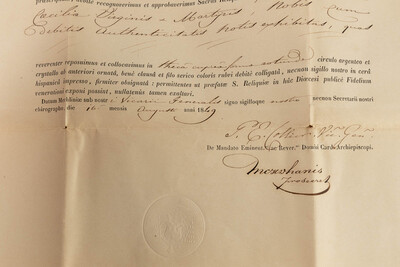 recognovimus et approbavimus Sacras
Cæcilia Virginis et Martyris, Nobis cum
debitis authenticitatis notis exhibitas, quas
reverenter reposuimus et collocavimus in theca rotunda circulo argenteo et
crystallo ab anteriori ornatâ, bene clausâ et filo serico coloris rubri debitè colligatâ, necnon sigillo nostro in cerâ
hispanicâ impresso, firmiter obsignatâ; permittentes ut præfatæ S. Reliquiæ in hâc Diœcesi publicæ Fidelium
venerationi exponi possint, nullatenus tamen exaltari.
Datum Mechliniæ sub nostr Vicarii Generalis signo sigilloque nostr necnon Secretarii nostri
chirographo, die 16â mensis Augusti anni 1869
De Mandato Eminent. ac Rever. Domini Card. Archiepiscopi.